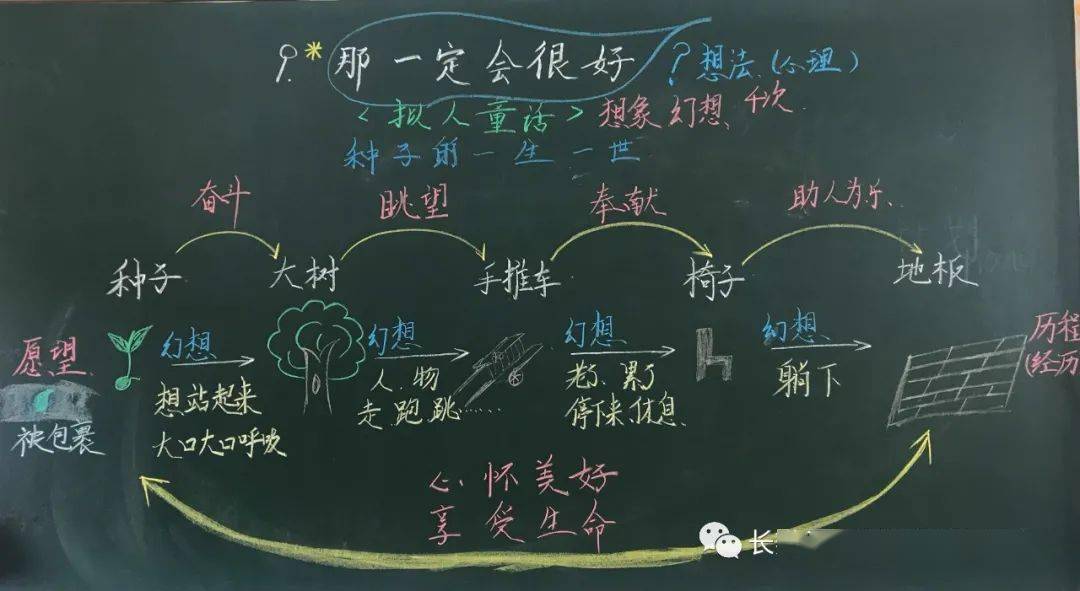 9.*那一定会很好?想法.(心理)
<拟人童话>想象幻想、4次.
种子的一生一世
奋斗 眺望 奉献 助人为乐.
种子 大树 手推车 椅子 地板
愿望 幻想 幻想 幻想 幻想 历程
(经历
想站起来 人.物 老了.累了 躺下
大口大口呼吸 走.跑.跳…… 停下来.休息.
被包裹
心怀美好
享受生命
长